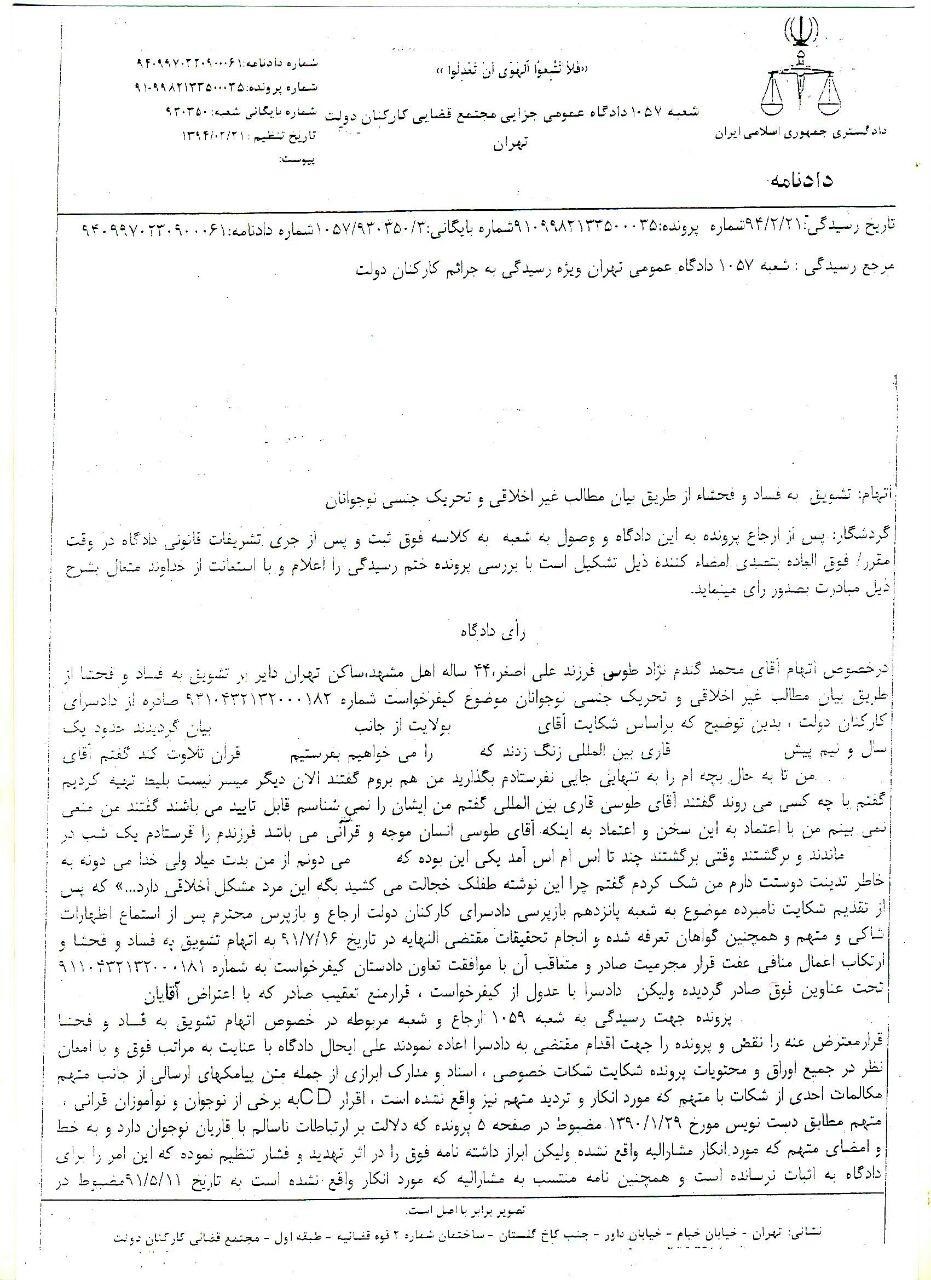 «فَلا تَتَّبِعوُا الهَوَی اَن تَعدِلوُا »
شعبه ۱۰۵۷ دادگاه عمومی جزایی مجتمع قضایی کارکنان دولت
تهران
دادگستری جمهوری اسلامی ایران
دادنامه
شماره دادنامه:۹۴۰۹۹۷۰۲۳۰۹۰۰۰۶۱
شماره پرونده:۹۱۰۹۹۸۲۱۳۳۵۰۰۰۳۵
شماره بایگانی شعبه: ۹۳۰۳۵۰
تاریخ تنظیم : ۱۳۹۴/۰۲/۲۱
پیوست:
تاریخ رسیدگی:۹۴/۲/۲۱شماره پرونده:۹۱۰۹۹۸۲۱۳۳۵۰۰۰۳۵شماره بایگانی:۱۰۵۷/۹۳۰۳۵۰/۳شماره دادنامه:۹۴۰۹۹۷۰۲۳۰۹۰۰۰۶۱
مرجع رسیدگی : شعبه ۱۰۵۷ دادگاه عمومی تهران ویژه رسیدگی به جرائم کارکنان دولت
اتهام: تشویق به فساد و فحشاء از طریق بیان مطالب غیر اخلاقی و تحریک جنسی نوجوانان
گردشکار: پس از ارجاع پرونده به این دادگاه و وصول به شعبه به کلاسه فوق ثبت و پس از جری تشریفات قانونی دادگاه در وقت
مقرر/ فوق العاده بتصدی امضاء کننده ذیل تشکیل است با بررسی پرونده ختم رسیدگی را اعلام و با استعانت از خداوند متعال بشرح
ذیل مبادرت بصدور رای مینماید.
رأی دادگاه
درخصوص اتهام آقای محمد گندم نژاد طوسی فرزند علی اصغر،۴۴ ساله اهل مشهد،ساکن تهران دایر بر تشویق به فساد و فحشا از
طریق بیان مطالب غیر اخلاقی و تحریک جنسی نوجوانان موضوع کیفرخواست شماره ۹۳۱۰۴۳۲۱۳۲۰۰۰۱۸۲ صادره از دادسرای
کارکنان دولت ، بدین توضیح که براساس شکایت آقای بولایت از جانب بیان گردیدند حدود یک
سال و نیم پیش قاری بین المللی زنگ زدند که را می خواهیم بفرستیم قرآن تلاوت کند گفتم آقای
من تا به حال بچه ام را به تنهایی جایی نفرستادم بگذارید من هم بروم گفتند الان دیگر میسر نیست بلیط تهیه کردیم
گفتم با چه کسی می روند گفتند آقای طوسی قاری بین المللی گفتم من ایشان را نمی شناسم قابل تایید می باشند گفتند من منعی
نمی بینم من با اعتماد به این سخن و اعتماد به اینکه آقای طوسی انسان موجه و قرآنی می باشد فرزندم را فرستادم یک شب در
ماندند و برگشتند وقتی برگشتند چند تا اس ام اس آمد یکی این بوده که می دونم از من بدت میاد ولی خدا می دونه به
خاطر تدینت دوستت دارم من شک کردم گفتم چرا این نوشته طفلک خجالت می کشید بگه این مرد مشکل اخلاقی دارد...» که پس
از تقدیم شکایت نامبرده موضوع به شعبه پانزدهم بازپرسی دادسرای کارکنان دولت ارجاع و بازپرس محترم پس از استماع اظهارات
شاکی و متهم و همچنین گواهان تعرفه شده و انجام تحقیقات مقتضی النهایه در تاریخ ۹۱/۷/۱۶ به اتهام تشویق به فساد و فحشا و
ارتکاب اعمال منافی عفت قرار مجرمیت صادر و متعاقب آن با موافقت معاون دادستان کیفرخواست به شماره ۹۱۱۰۴۳۲۱۳۲۰۰۰۱۸۱
تحت عناوین فوق صادر گردیده ولیکن دادسرا با عدول از کیفرخواست ، قرارمنع تعقیب صادر که با اعتراض آقایان
پرونده جهت رسیدگی به شعبه ۱۰۵۹ ارجاع و شعبه مربوطه در خصوص اتهام تشویق به فساد و فحشا
قرارمعترض عنه را نقض و پرونده را جهت اقدام مقتضی به دادسرا اعاده نمودند علی ایحال دادگاه با عنایت به مراتب فوق و با امعان
نظر در جمیع اوراق و محتویات پرونده شکایت شکات خصوصی ، اسناد و مدارک ابرازی از جمله متن پیامکهای ارسالی از جانب متهم
به برخی از نوجوان و نوآموزان قرانی ، CDمکالمات احدی از شکات با متهم که مورد انکار و تردید متهم نیز واقع نشده است ، اقرار
متهم مطابق دست نویس مورخ ۱۳۹۰/۱/۲۹ مضبوط در صفحه ۵ پرونده که دلالت بر ارتباطات ناسالم با قاریان نوجوان دارد و به خط
و امضای متهم که مورد انکار مشارالیه واقع نشده ولیکن ابراز داشته نامه فوق را در اثر تهدید و فشار تنظیم نموده که این امر را برای
دادگاه به اثبات نرسانده است و همچنین نامه منتسب به مشارالیه که مورد انکار واقع نشده است به تاریخ ۹۱/۵/۱۱مضبوط در
تصویر برابر با اصل است.
نشانی: تهران - خیابان خیام - خیابان داور - جنب کاخ گلستان - ساختمان شماره ۲ قوه قضائیه - طبقه اول - مجتمع قضائی کارکنان دولت